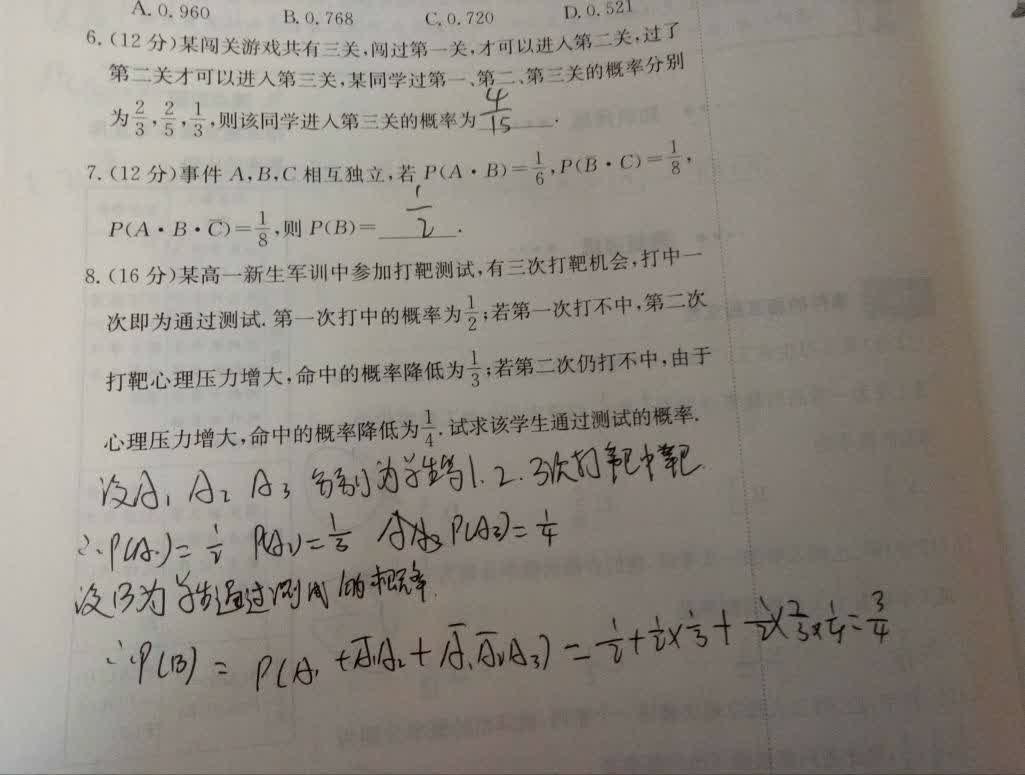 A. 0.960 B. 0.768 C. 0.720 D. 0.521
6. (12分)某闯关游戏共有三关,闯过第一关,才可以进入第二关,过了
第二关才可以进入第三关,某同学过第一、第二、第三关的概率分别
为2/3,2/5,1/3,则该同学进入第三关的概率为 4/15 .
7. (12分)事件 A,B,C 相互独立,若 P(A·B)=1/6,P(B̄·C)=1/8,
P(A·B·C̄)=1/8,则 P(B)= 1/2 .
8. (16分)某高一新生军训中参加打靶测试,有三次打靶机会,打中一
次即为通过测试. 第一次打中的概率为1/2;若第一次打不中,第二次
打靶心理压力增大,命中的概率降低为1/3;若第二次仍打不中,由于
心理压力增大,命中的概率降低为1/4. 试求该学生通过测试的概率.
设A₁ A₂ A₃ 分别为学生第1. 2. 3次打靶中靶.
∴P(A₁)=1/2 P(A₂)=1/3 P(A₃)=1/4
设B为学生通过测试的概率.
∴P(B) = P(A₁+Ā₁A₂+Ā₁Ā₂A₃) = 1/2+1/2×1/3+1/2×2/3×1/4=3/4